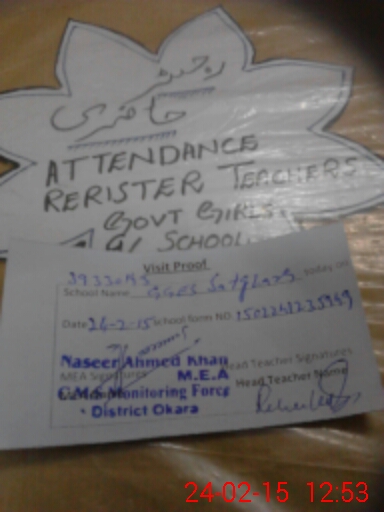 رجسٹر
حاضری
ATTENDANCE
RERISTER TEACHERS
GOVT GIRLS
SCHOOL
Visit Proof
39330145 today on
School Name GGES Satghara
Date 26-2-15 School form NO
Naseer Ahmed Khan Head Teacher Signatures
MEA Signatures M.E.A Head Teacher Name
C.M.S Monitoring Force
District Okara
24-02-15 12:53